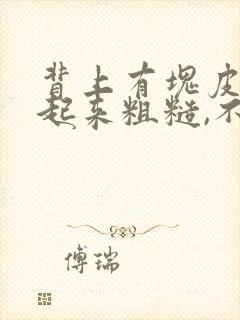 背上有块皮
起来粗糙,不
傅瑞